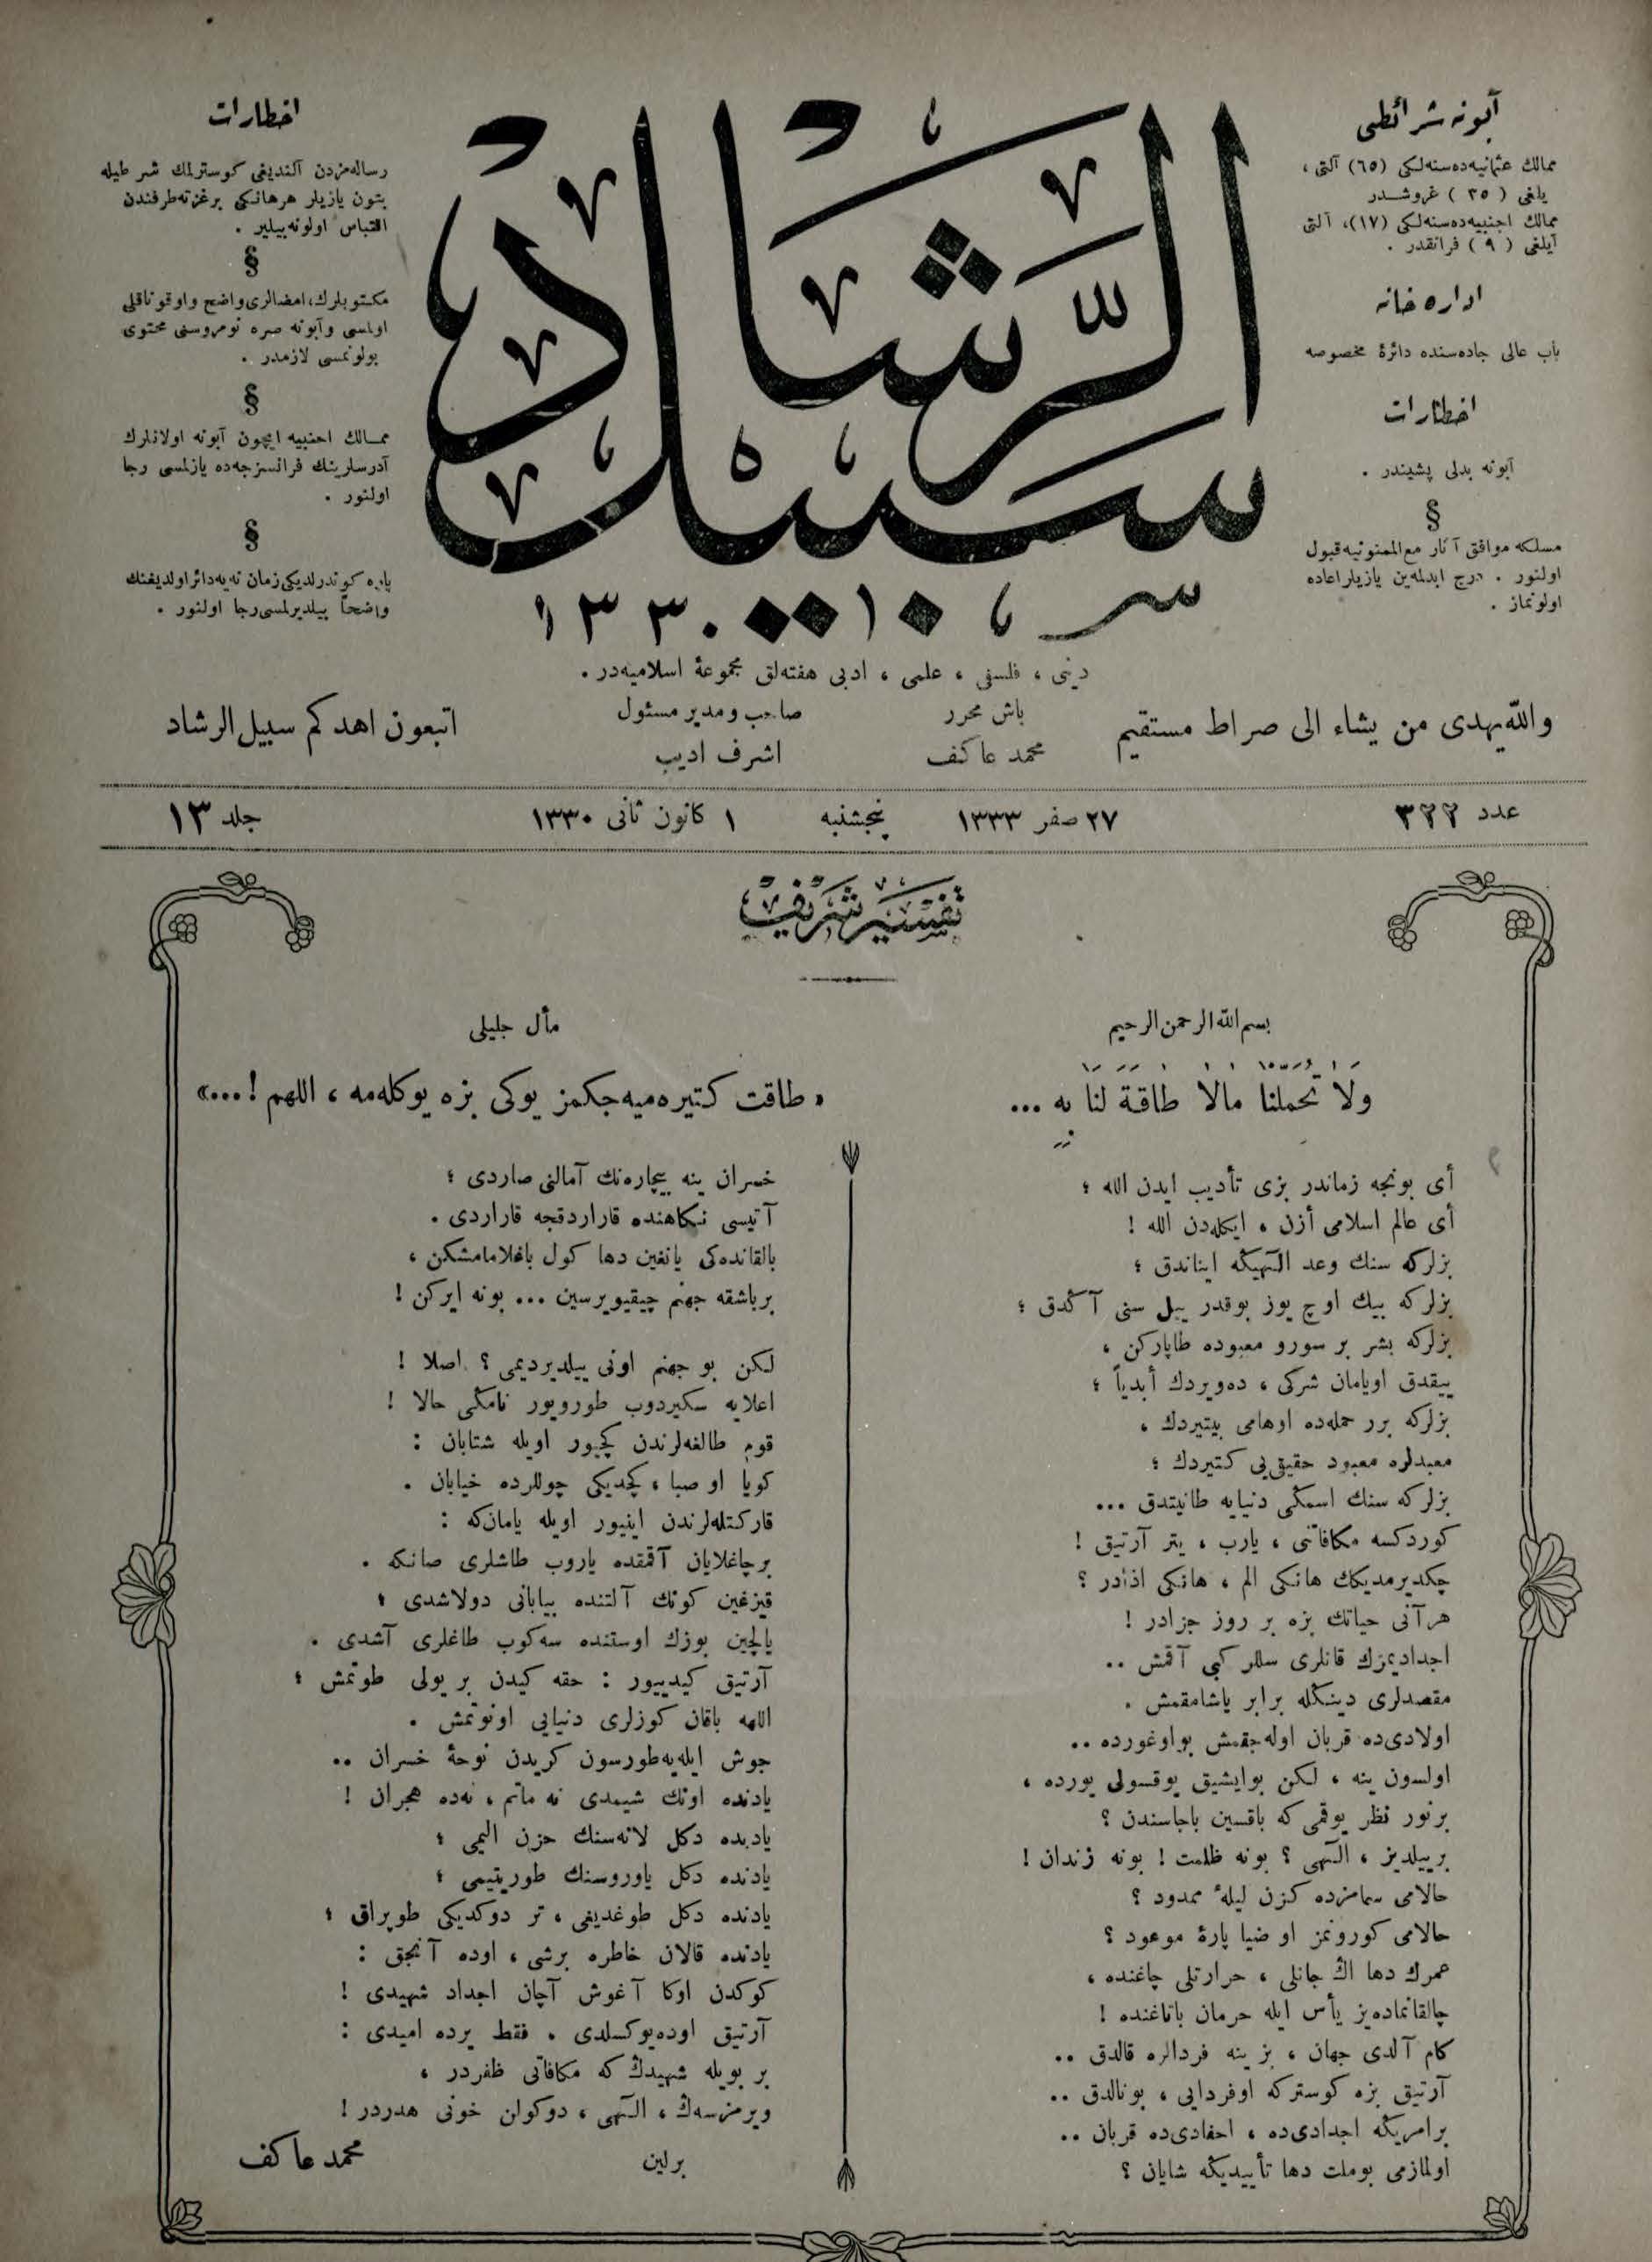 آبونه شرائطی
ممالك عثمانیه‌ده سنه‌لكی (٦٥) آلتی ،
یلغی ( ٣٥ ) غروشدر
ممالك اجنبیه‌ده سنه‌لكی (١٧)، آلتی
آیلغی ( ٩ ) فرانقدر .
اداره خانه
باب عالی جاده‌سنده دائرهٔ مخصوصه
اخطارات
آبونه بدلی پشیندر .
§
مسلكه موافق آثار مع الممنونیه قبول
اولنور . درج ایدلمه‌ین یازیلر اعاده
اولونماز .
سبیل الرشاد
١٣٣٠
اخطارات
رساله‌مزدن آلندیغی كوسترلمك شرطیله
بتون یازیلر هرهانكی برغزته طرفندن
اقتباس اولونه بیلیر .
§
مكتوبلرك، امضالری واضح واوقوناقلی
اولمسی وآبونه صره نومروسنی محتوی
بولونمسی لازمدر .
§
ممالك اجنبیه ایچون آبونه اولانلرك
آدرسلرینك فرانسزجه‌ده یازلمسی رجا
اولنور .
§
پاره كوندرلدیكی زمان نه‌یه دائر اولدیغنك
واضحاً بیلدیرلمسی رجا اولنور .
دینی ، فلسفی ، علمی ، ادبی هفته‌لق مجموعهٔ اسلامیه‌در .
والله یهدی من یشاء الی صراط مستقیم
باش محرر
محمد عاكف
صاحب و مدیر مسئول
اشرف ادیب
اتبعون اهدكم سبیل الرشاد
عدد ٣٢٢
٢٧ صفر ١٣٣٣
پنجشنبه
١ كانون ثانی ١٣٣٠
جلد ١٣
تفسیر شریف
بسم الله الرحمن الرحیم
وَلَا تُحَمِّلْنَا مَالَا طَاقَةَ لَنَا بِهِ ...
أی بونجه زماندر بزی تأدیب ایدن الله ؛
أی عالم اسلامی أزن ، ایكله‌دن الله !
بزلركه سنك وعد الٓهیكه ایناندق ؛
بزلركه بیك اوچ یوز بوقدر ییل سنی آكدق ؛
بزلركه بشر بر سورو معبوده طاپاركن ،
ییقدق اویامان شركی ، ده‌ویردك أبدیاً ؛
بزلركه برر حمله‌ده اوهامی بیتیردك ،
معبدلره معبود حقیقی‌یی كتیردك ؛
بزلركه سنك اسمكی دنیایه طانیتدق ...
كوردكسه مكافاتنی ، یارب ، یتر آرتیق !
چكدیرمدیكك هانكی الم ، هانكی اذادر ؟
هرآنی حیاتك بزه بر روز جزادر !
اجدادیمزك قانلری سللر كبی آقمش ..
مقصدلری دینكله برابر یاشامقمش .
اولادی‌ده قربان اوله‌جقمش بو اوغورده ..
اولسون ینه ، لكن بو ایشیق یوقسولی یورده ،
برنور نظر یوقمی كه باقسین باجاسندن ؟
برییلدیز ، الٓهی ؟ بونه ظلمت ! بونه زندان !
حالامی سمامزده كزن لیلهٔ ممدود ؟
حالامی كورونمز او ضیا پارهٔ موعود ؟
عمرك دها اڭ جانلی ، حرارتلی چاغنده ،
چالقانماده‌یز یأس ایله حرمان باتاغنده !
كام آلدی جهان ، بز ینه فردالره قالدق ..
آرتیق بزه كوستركه اوفردایی ، بونالدق ..
برامریكه اجدادی‌ده ، احفادی‌ده قربان ..
اولمازمی بوملت دها تأییدیكه شایان ؟
مآل جلیلی
« طاقت كتیره‌میه‌جكمز یوكی بزه یوكله‌مه ، اللهم !...»
خسران ینه بیچاره‌نك آمالنی صاردی ؛
آتیسی نكاهنده قاراردقجه قاراردی .
بالقانده‌كی یانغین دها كول باغلامامشكن ،
برباشقه جهنم چیقیویرسین ... بونه ایركن !
لكن بو جهنم اونی ییلدیردیمی ؟ اصلا !
اعلایه سكیردوب طورویور نامكی حالا !
قوم طالغه‌لرندن كچیور اویله شتابان :
كویا او صبا ، كچدیكی چوللرده خیابان .
قار كتله‌لرندن اینیور اویله یامان‌كه :
برچاغلایان آقمقده یاروب طاشلری صانكه .
قیزغین كونك آلتنده بیابانی دولاشدی ؛
یالچین بوزك اوستنده سه‌كوب طاغلری آشدی .
آرتیق كیدییور : حقه كیدن بر یولی طوتمش ؛
اللهه باقان كوزلری دنیایی اونوتمش .
جوش ایله‌یه طورسون كریدن نوحهٔ خسران ..
یادنده اونك شیمدی نه ماتم ، نه‌ده هجران !
یادنده دكل لانه‌سنك حزن الیمی ؛
یادنده دكل یاوروسنك طور یتیمی ؛
یادنده دكل طوغدیغی ، تر دوكدیكی طوپراق ؛
یادنده قالان خاطره برشی ، اوده آنجق :
كوكدن اوكا آغوش آچان اجداد شهیدی !
آرتیق اوده یوكسلدی . فقط یرده امیدی :
بر بویله شهیدك‌كه مكافاتی ظفردر ،
ویرمزسه‌ك ، الٓهی ، دوكولن خونی هدردر !
برلین
محمد عاكف